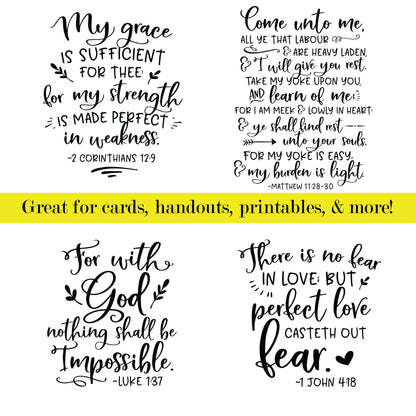 My grace
IS SUFFICIENT
FOR THEE:
for my strength
IS MADE PERFECT
in weakness.
-2 CORINTHIANS 12:9
Come unto me,
ALL YE THAT LABOUR
& ARE HEAVY LADEN,
& I will give you rest.
TAKE MY YOKE UPON YOU,
AND learn of me;
FOR I AM MEEK & LOWLY IN HEART:
& ye shall find rest
unto your souls.
FOR MY YOKE IS EASY,
& my burden is light.
-MATTHEW 11:28-30
Great for cards, handouts, printables, & more!
For with
God
nothing shall be
Impossible.
-LUKE 1:37
There is no fear
IN LOVE; BUT
perfect love
CASTETH OUT
fear.
-1 JOHN 4:18